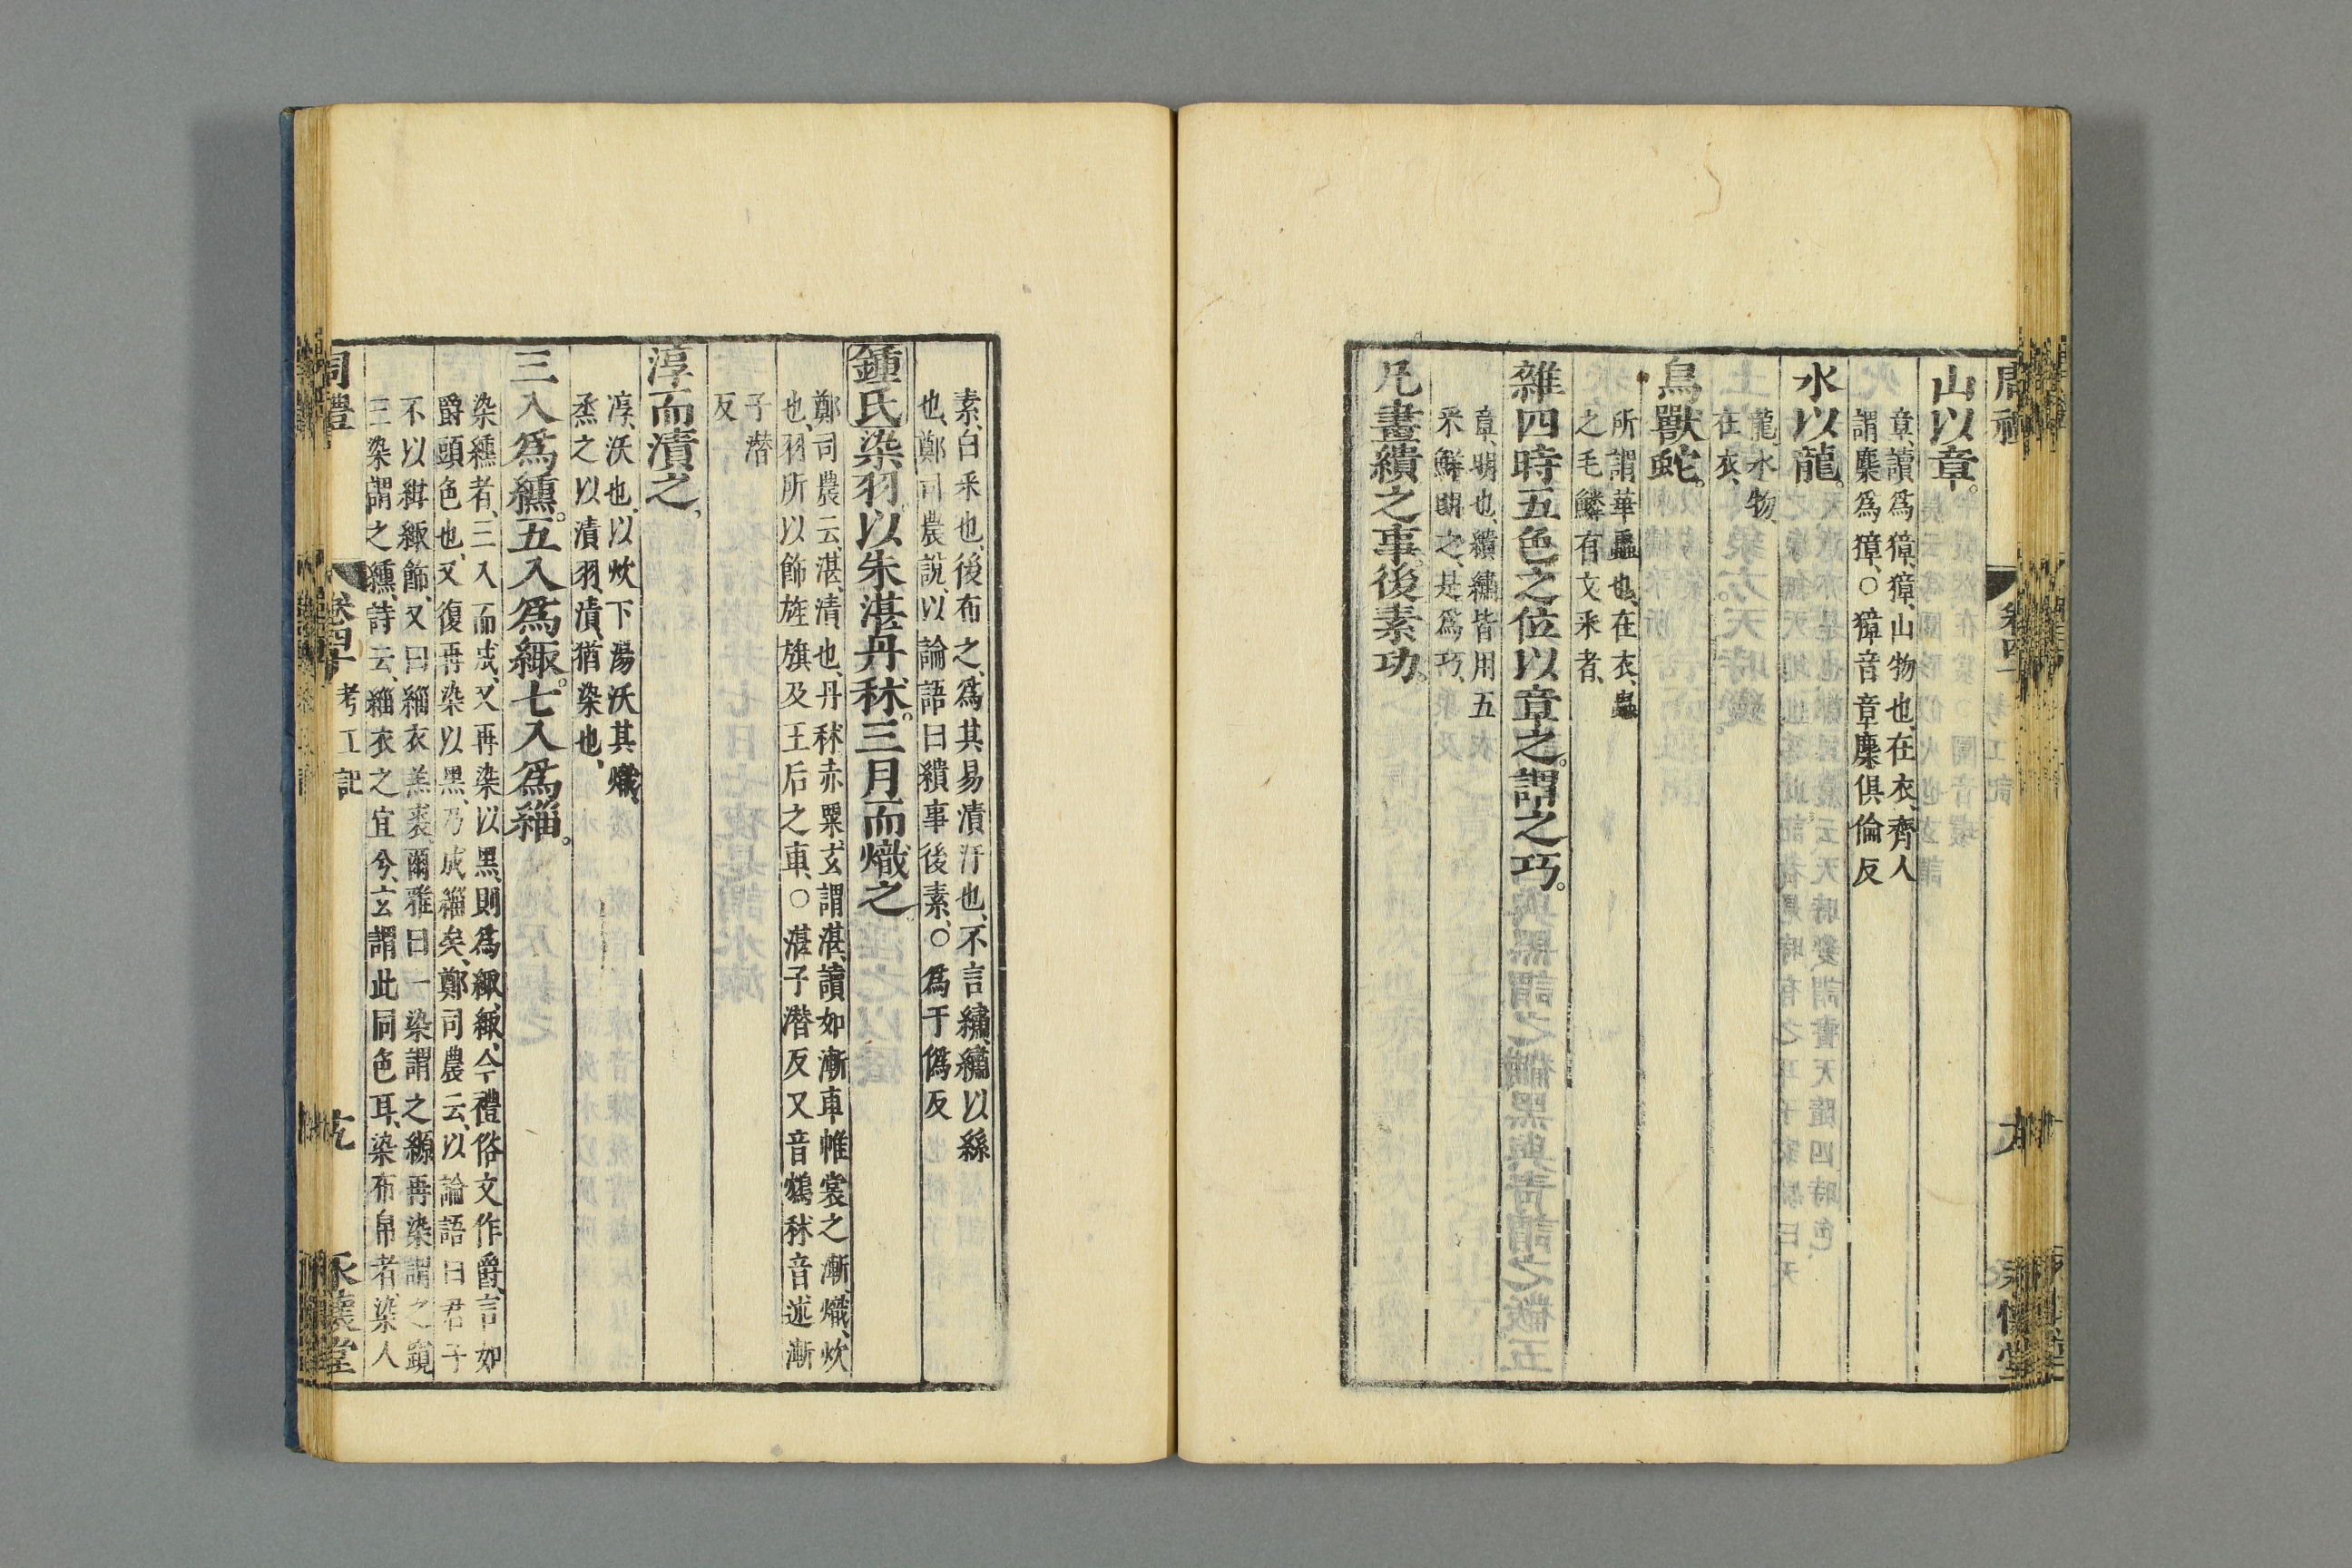 山以章。
章、讀爲獐、獐、山物也、在衣、齊人
謂麇爲獐、○獐音章麇俱倫反
水以龍。
龍、水物、
在衣、
鳥獸蛇。
所謂華蟲也、在衣、蟲
之毛鱗有文采者、
雜四時五色之位以章之。謂之巧。
章、明也、繢繡皆用五
采鮮明之、是爲巧、
凡畫繢之事。後素功。
素、白采也、後布之、爲其易漬汙也、不言繡、繡以絲
也、鄭司農說、以論語曰繢事後素、○爲于僞反
鍾氏染羽。以朱湛丹秫。三月而熾之。
鄭司農云、湛、漬也、丹秫赤粟、玄謂湛、讀如漸車帷裳之漸、熾、炊
也、羽所以飾旌旗及王后之車、○湛子潛反又音鴆秫音述漸
子潛
反
淳而漬之。
淳、沃也、以炊下湯沃其熾、
烝之以漬羽、漬、猶染也、
三入爲纁。五入爲緅。七入爲緇。
染纁者、三入而成、又再染以黑、則爲緅、緅、今禮俗文作爵、言如
爵頭色也、又復再染以黑、乃成緇矣、鄭司農云、以論語曰君子
不以紺緅飾、又曰緇衣羔裘、爾雅曰一染謂之縓再染謂之竀
三染謂之纁、詩云、緇衣之宜兮、玄謂此同色耳、染布帛者、染人
周禮 卷四十 考工記 九 永懷堂